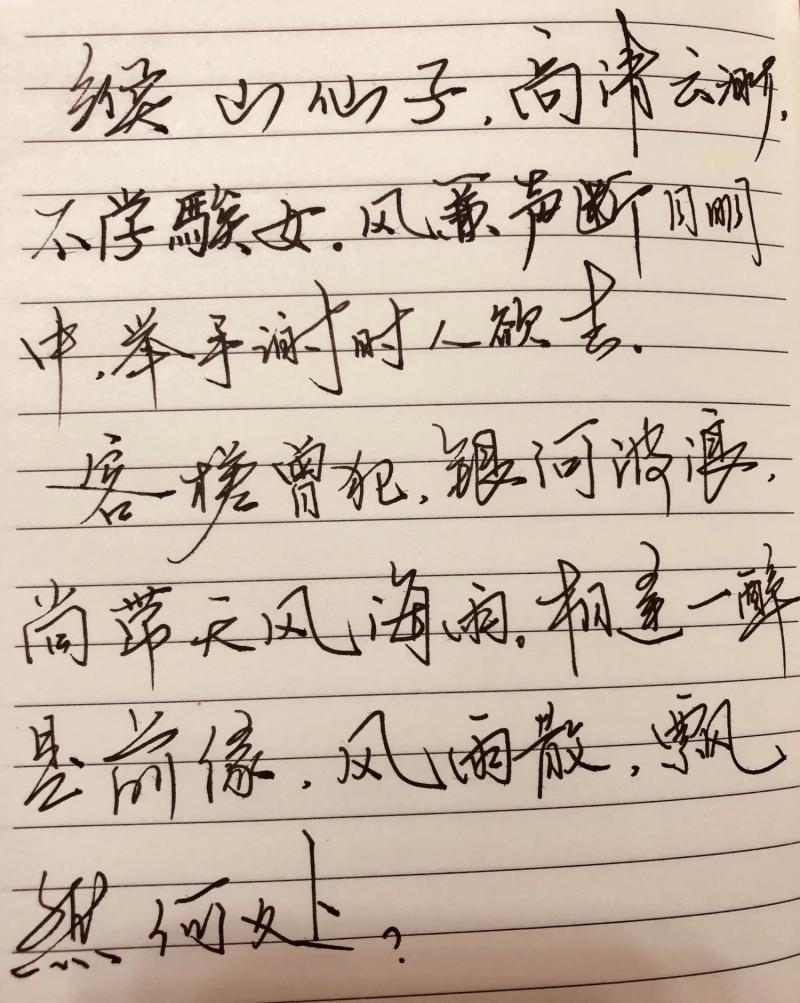 缑山仙子,高清云渺,
不学騃女.凤箫声断月明
中,举手谢时人欲去.
客槎曾犯,银河波浪,
尚带天风海雨。相逢一醉
是前缘,风雨散,飘
然何处?